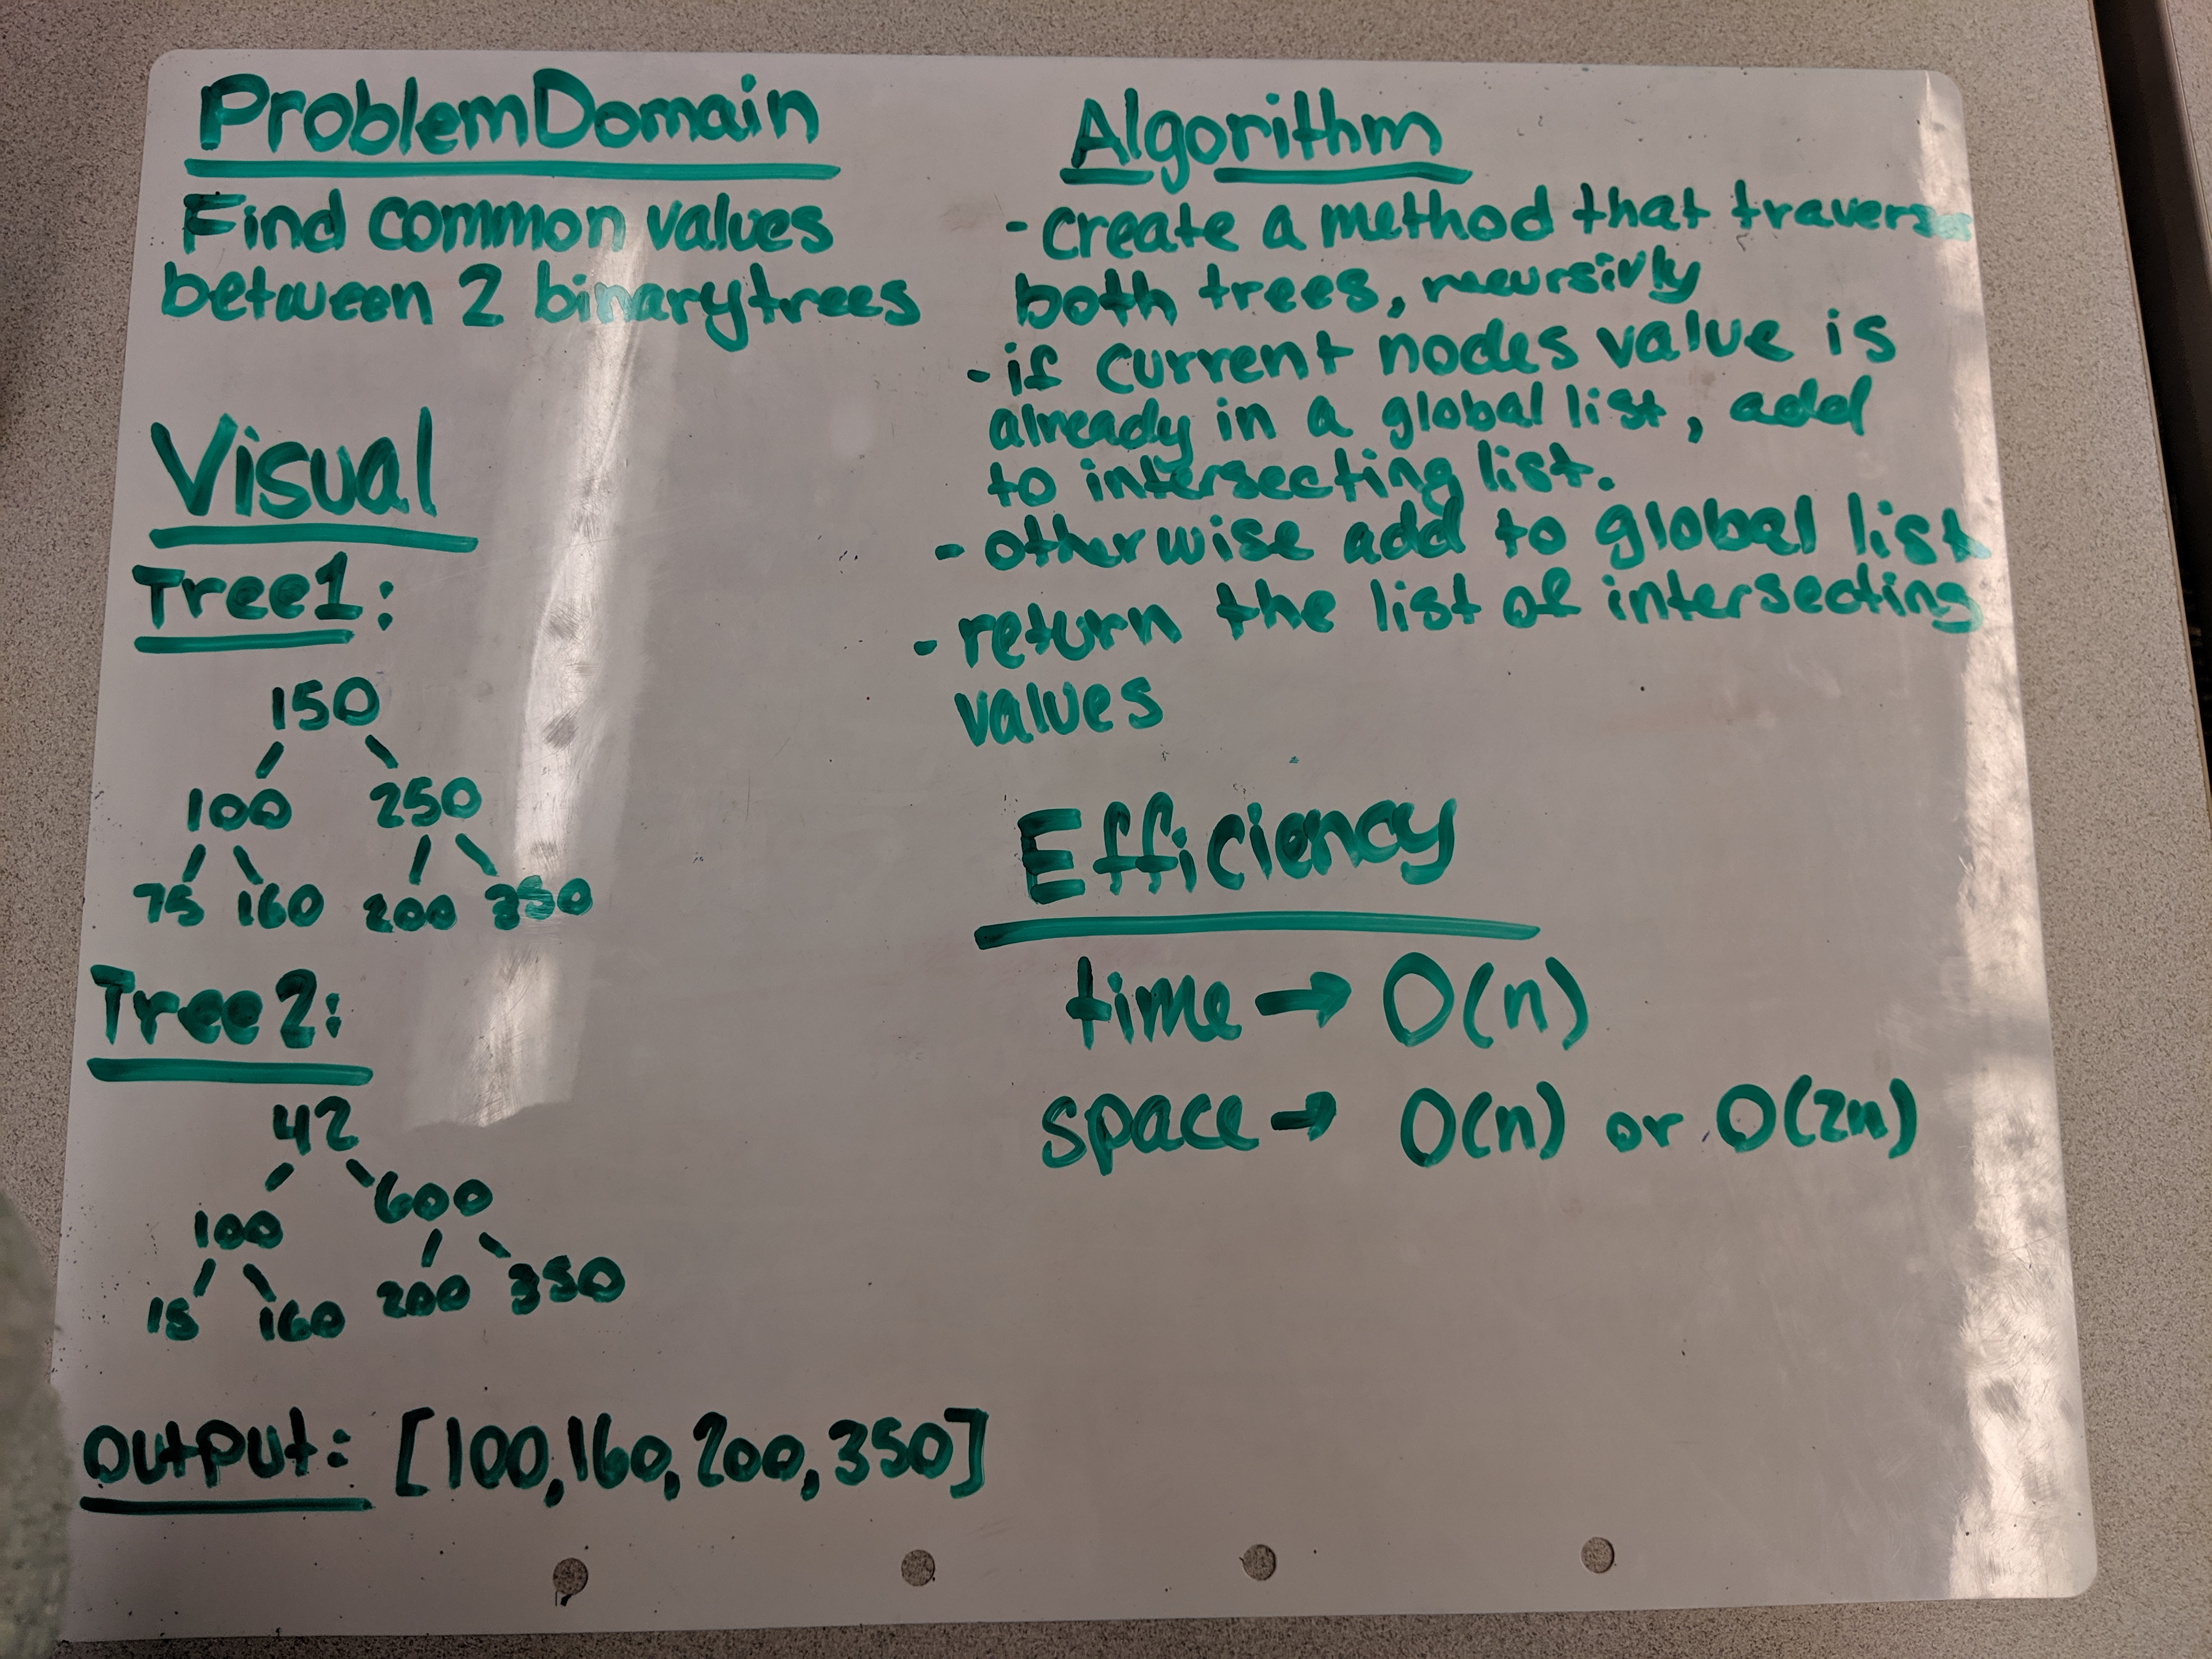 ProblemDomain
Find common values
between 2 binarytrees
Visual
Tree1:
150
100 250
75 160 200 350
Tree2:
42
100 600
15 160 200 350
output: [100,160,200,350]
Algorithm
- create a method that traverse
both trees, recursivly
- if current nodes value is
already in a global list, add
to intersecting list.
- otherwise add to global list
- return the list of intersecting
values
Efficiency
time → O(n)
space → O(n) or O(2n)